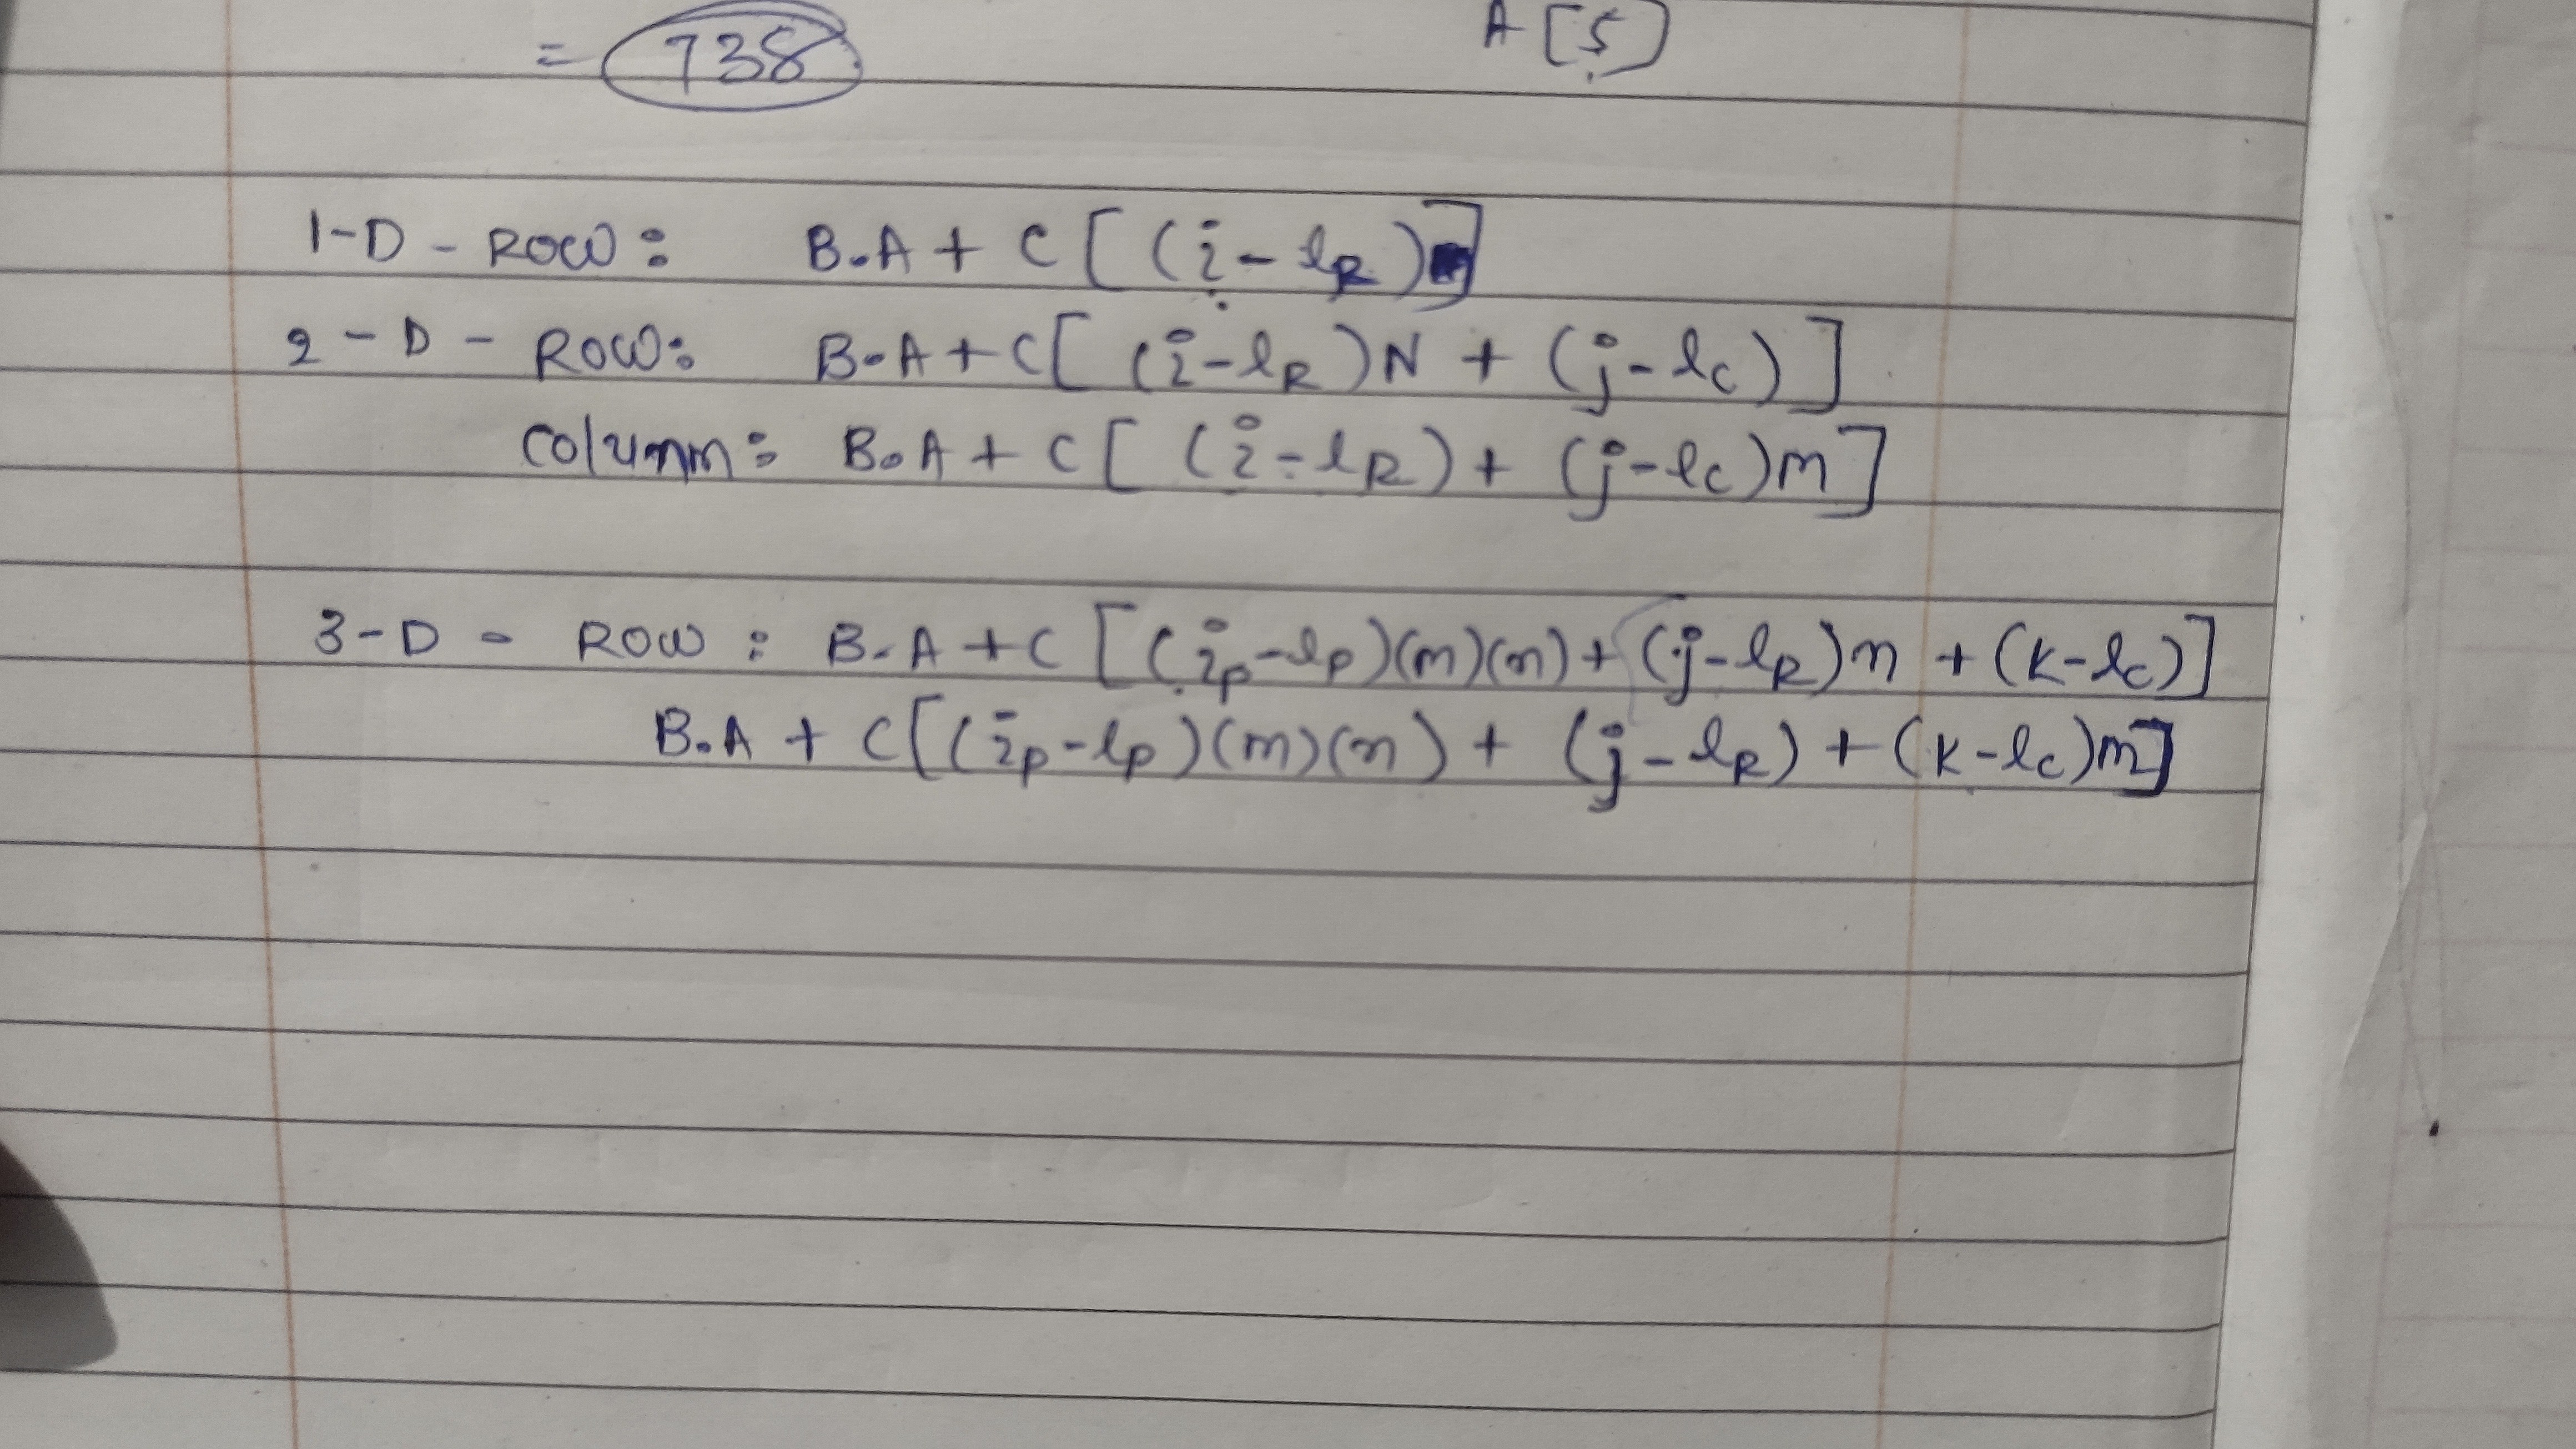 = 738 A[5]
1-D - ROW: B.A + C[(i-lR)]
2-D - ROW: B.A + C[(i-lR)N + (j-lc)]
Column: B.A + C[(i-lR) + (j-lc)m]
3-D - ROW : B.A + C[(ip-lp)(m)(n) + (j-lR)n + (k-lc)]
B.A + C[(ip-lp)(m)(n) + (j-lR) + (k-lc)m]